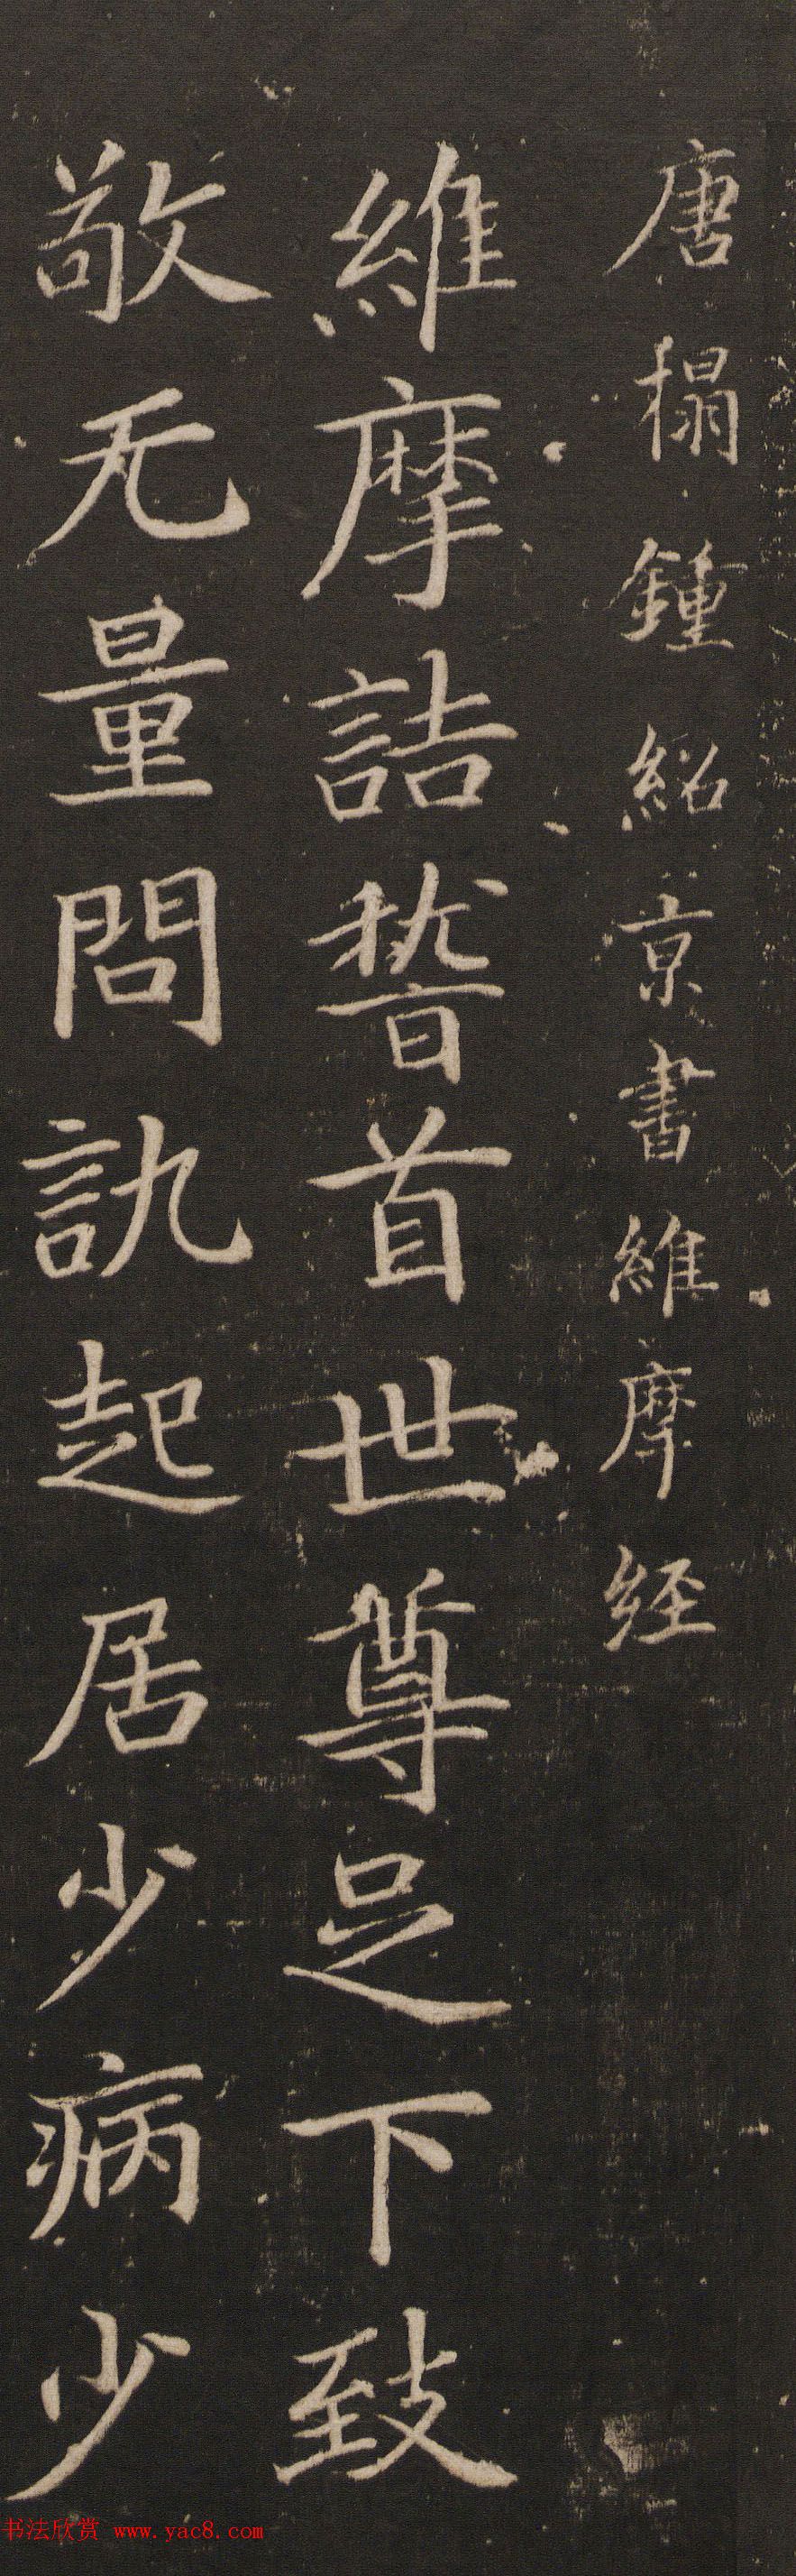 唐榻鍾紹京書維摩経
維摩詰稽首世尊足下致
敬无量問訊起居少病少
书法欣赏 www.yac8.com